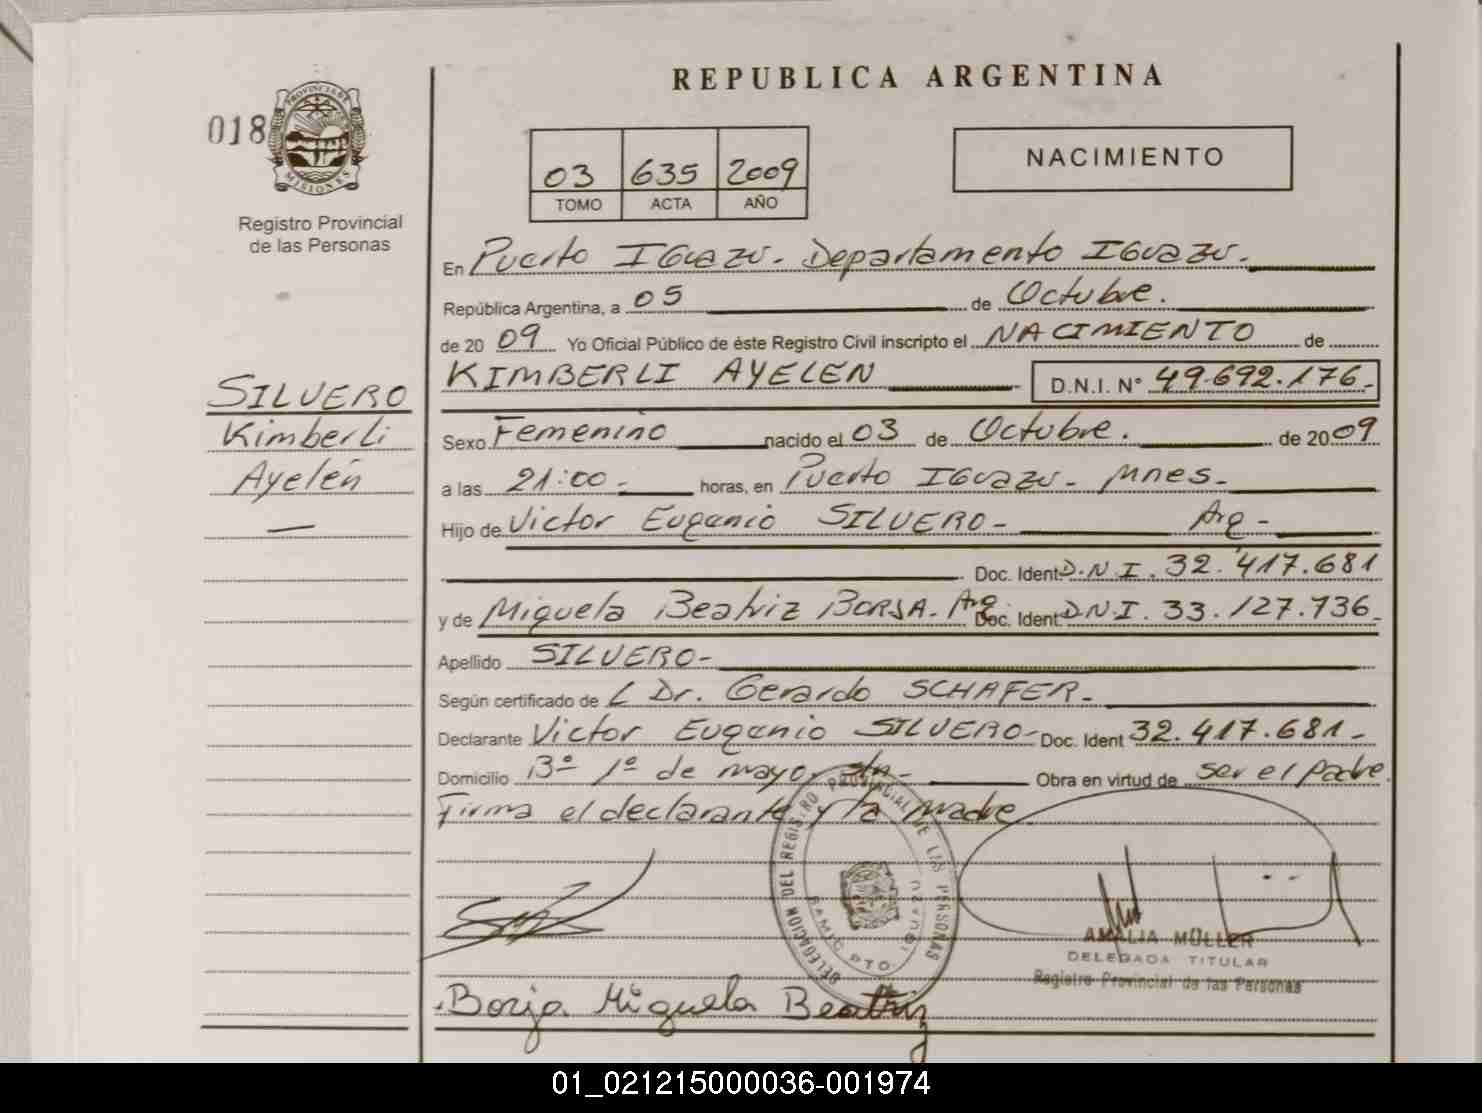 REPUBLICA ARGENTINA
018
PROVINCIA DE
MISIONES
Registro Provincial
de las Personas
03 635 2009
TOMO ACTA AÑO
NACIMIENTO
En Puerto IGuazu. Departamento IGuazu.
República Argentina, a 05 de Octubre.
de 20 09 Yo Oficial Público de éste Registro Civil inscripto el NACIMIENTO de
KIMBERLI AYELEN D.N.I. N° 49.692.176.
SILVERO
Kimberli
Ayelén
Sexo Femenino nacido el 03 de Octubre. de 2009
a las 21:00. horas, en Puerto IGuazu. Mnes.
Hijo de Victor Eugenio SILVERO- Arg-
Doc. Ident D.N.I. 32.417.681
y de Miguela Beatriz BORJA. Arg. Doc. Ident D.N.I. 33.127.736.
Apellido SILVERO-
Según certificado de L Dr. Gerardo SCHAFER.
Declarante Victor Eugenio SILVERO- Doc. Ident 32.417.681.-
Domicilio B° 1° de mayo, s/n- Obra en virtud de ser el Padre.
Firma el declarante y la Madre
DELEGACION DEL REGISTRO PROVINCIAL DE LAS PERSONAS
PTO. IGUAZU
AMALIA MÜLLER
DELEGADA TITULAR
Registro Provincial de las Personas
Borja Miguela Beatriz
01_021215000036-001974